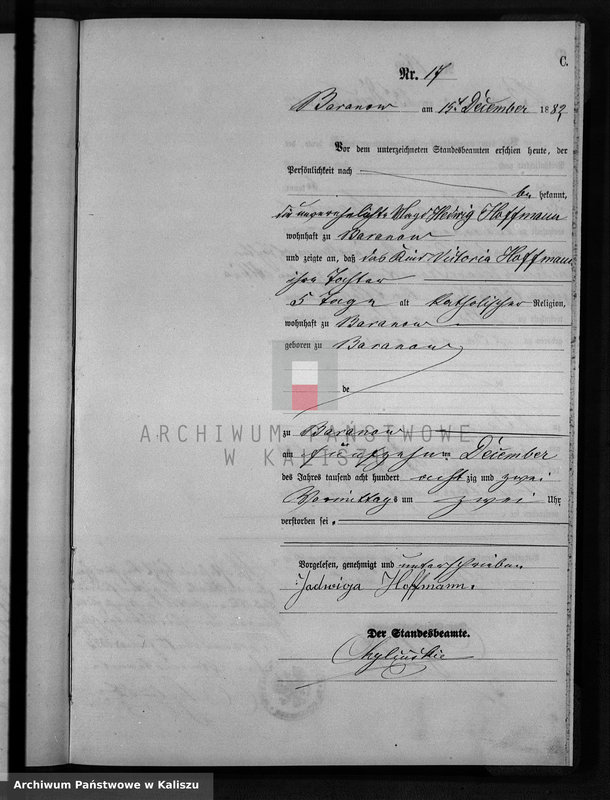 C.
Nr. 17
Baranow am 15. December 1882
Vor dem unterzeichneten Standesbeamten erschien heute, der
Persönlichkeit nach
be kannt,
die unverehelichte Magd Hedwig Hoffmann
wohnhaft zu Baranow
und zeigte an, daß das Kind Victoria Hoffmann
ihre Tochter
5 Tage alt katholischer Religion,
wohnhaft zu Baranow
geboren zu Baranow
de
zu Baranow
am fünfzehnten December
des Jahres tausend acht hundert acht zig und zwei
Vormittags um zwei Uhr
verstorben sei.
Vorgelesen, genehmigt und unterschrieben
Jadwiga Hoffmann.
Der Standesbeamte.
ARCHIWUM PAŃSTWOWE
W KALISZU
Archiwum Państwowe w Kaliszu